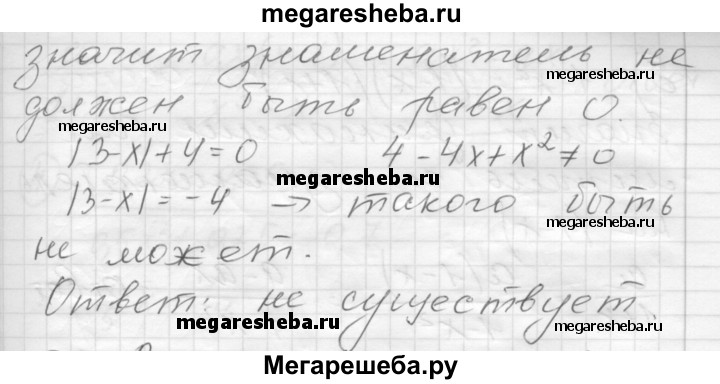 megaresheba.ru
значит знаменатель не
megaresheba.ru
должен быть равен 0.
megaresheba.ru
|3-x|+4=0 4-4x+x²≠0
megaresheba.ru
|3-x|=-4 → такого быть
megaresheba.ru
не может.
Ответ: не существует.
megaresheba.ru
megaresheba.ru
Мегарешеба.ру